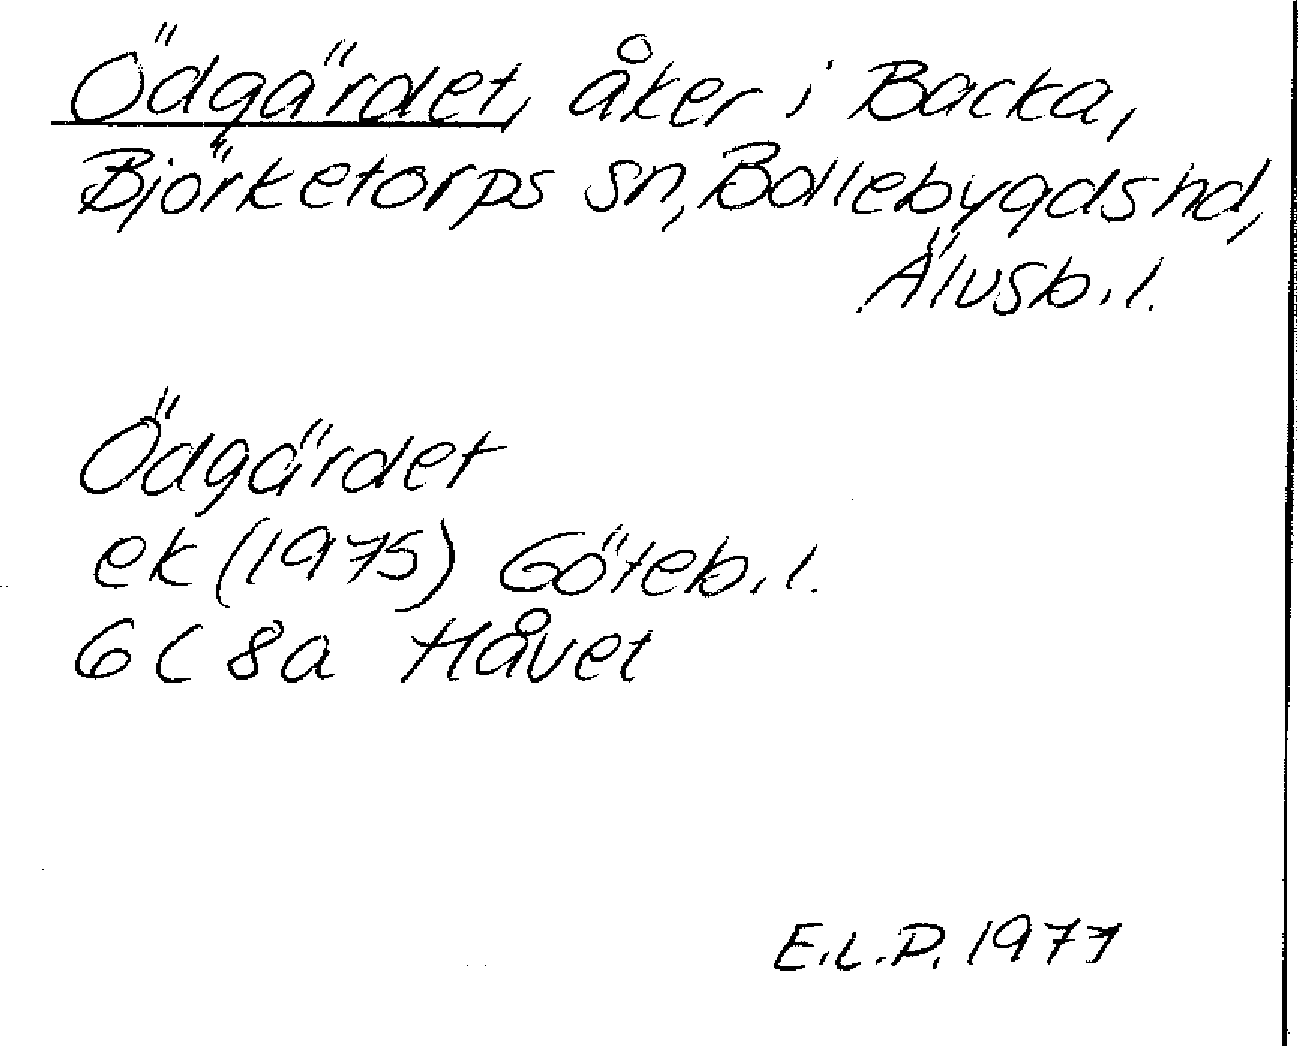 Ödgärdet, åker i Backa,
Björketorps sn, Bollebygds hd,
Älvsb. l.
Ödgärdet
ek (1975) Göteb. l.
6C 8a Håvet
E.L.P. 1977